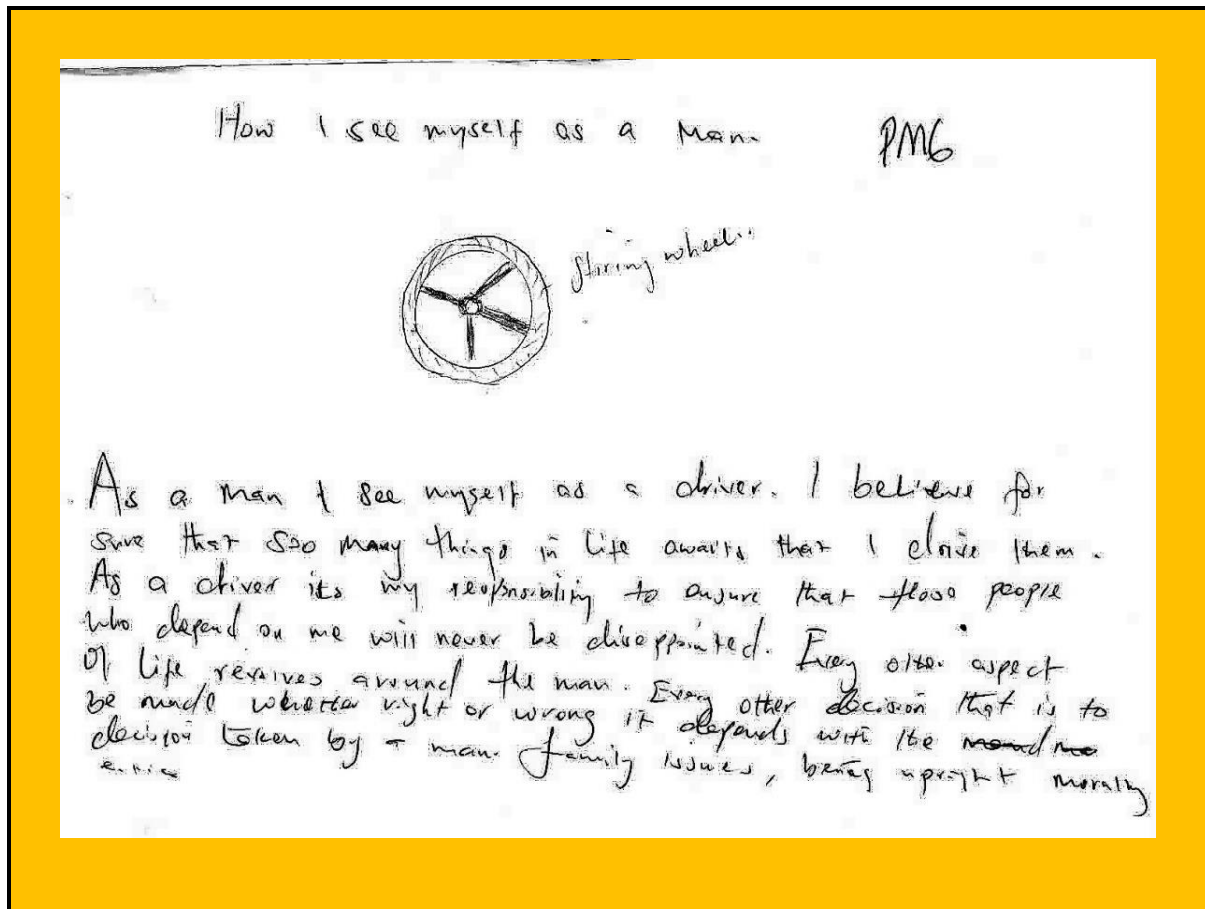 How I see myself as a Man. PM6
Stiring wheel..
As a man I see myself as a driver. I believe for
sure that soo many things in life awaits that I drive them.
As a driver its my responsibility to ensure that those people
who depend on me will never be disappointed. Every other aspect
of life revolves around the man. Every other decision that is to
be made whether right or wrong it depends with the
decision taken by a man. family issues, being upright morally